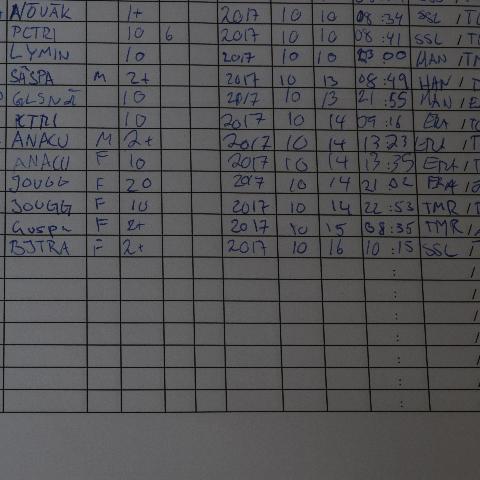 NOVAK 1+ 2017 10 10 08:34 SSL /T
PCTRI 10 6 2017 10 10 08:41 SSL /T
LYMIN 10 2017 10 10 23 00 MAN /T
SASPA M 2+ 2017 10 13 08:49 HAN /T
GLSNA 10 2017 10 13 21:55 MAN /E
10 2017 10 14 09:16 /T
ANACU M 2+ 2017 10 14 13 23 /T
ANACU F 10 2017 10 14 13:35 ERA /T
JOUGG F 20 2017 10 14 21 02 ERA
JOUGG F 10 2017 10 14 22:53 TMR /T
Guspu F 2+ 2017 10 15 08:35 TMR /
BJTRA F 2+ 2017 10 16 10:15 SSL /
: /
: /
: /
: /
: /
: /
: